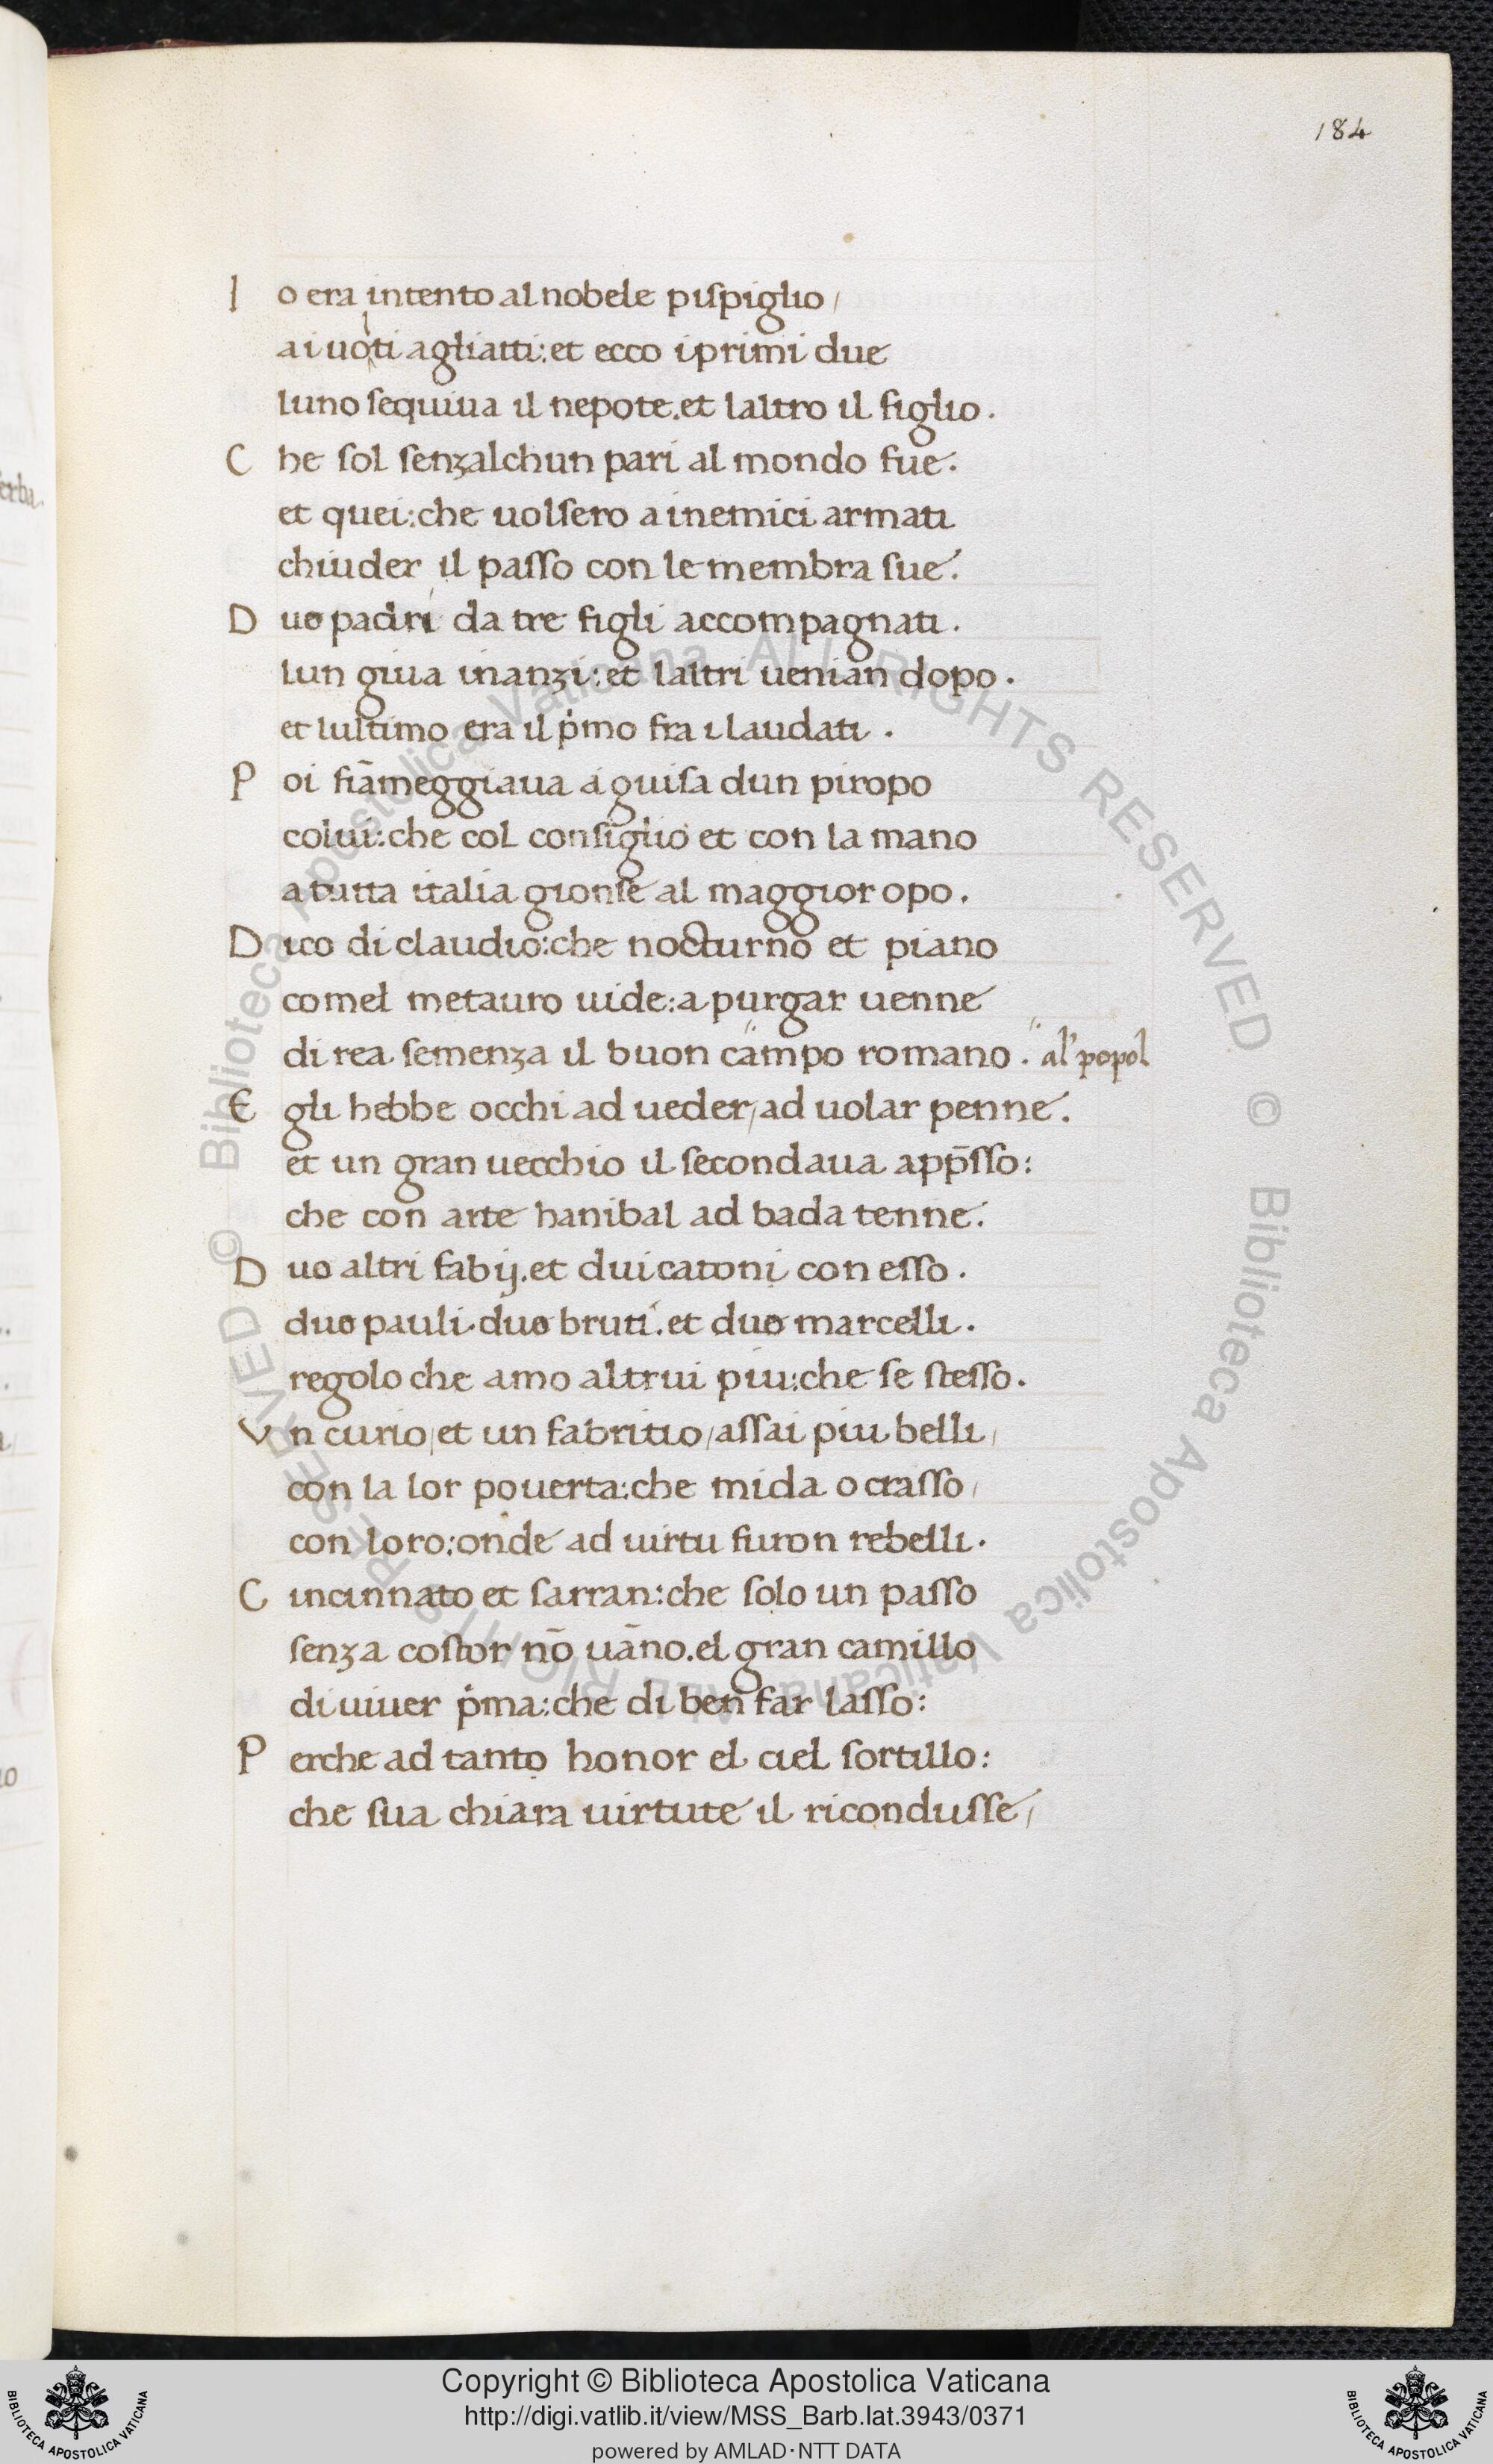 184
I o era intento al nobele piſpiglio /
a i uolti agliatti: et ecco i primi due
luno ſequiua il nepote. et laltro il figlio.
C he ſol ſenzalchun pari al mondo fue.
et quei: che uolſero a inemici armati
chiuder il paſſo con le membra ſue.
D uo padri da tre figli accompagnati.
lun giua inanzi: et laltri uenian dopo.
et lultimo era il p̓mo fra i laudati.
P oi fiāmeggiaua a guiſa dun piropo
colui: che col conſiglio et con la mano
a tutta italia gionſe al maggior opo.
D ico di claudio: che nocturno et piano
comel metauro uide: a purgar uenne
di rea ſemenza il buon campo romano. al' popol
E gli hebbe occhi ad ueder / ad uolar penne.
et un gran uecchio il ſecondaua app̄ſſo:
che con arte hanibal ad bada tenne.
D uo altri fabij. et dui catoni con eſſo.
duo pauli. duo bruti. et duo marcelli.
regolo che amo altrui piu: che ſe ſteſſo.
V n curio / et un fabritio / aſſai piu belli /
con la lor pouerta: che mida o craſſo /
con loro: onde ad uirtu furon rebelli.
C incinnato et ſarran: che ſolo un paſſo
ſenza coſtor nō uāno. el gran camillo
di uiuer p̓ma: che di ben far laſſo:
P erche ad tanto honor el ciel ſortillo:
che ſua chiara uirtute il riconduſſe /
Copyright © Biblioteca Apostolica Vaticana
http://digi.vatlib.it/view/MSS_Barb.lat.3943/0371
powered by AMLAD·NTT DATA
BIBLIOTECA APOSTOLICA VATICANA
BIBLIOTECA APOSTOLICA VATICANA
© Biblioteca Apostolica Vaticana ALL RIGHTS RESERVED © Biblioteca Apostolica Vaticana ALL RIGHTS RESERVED